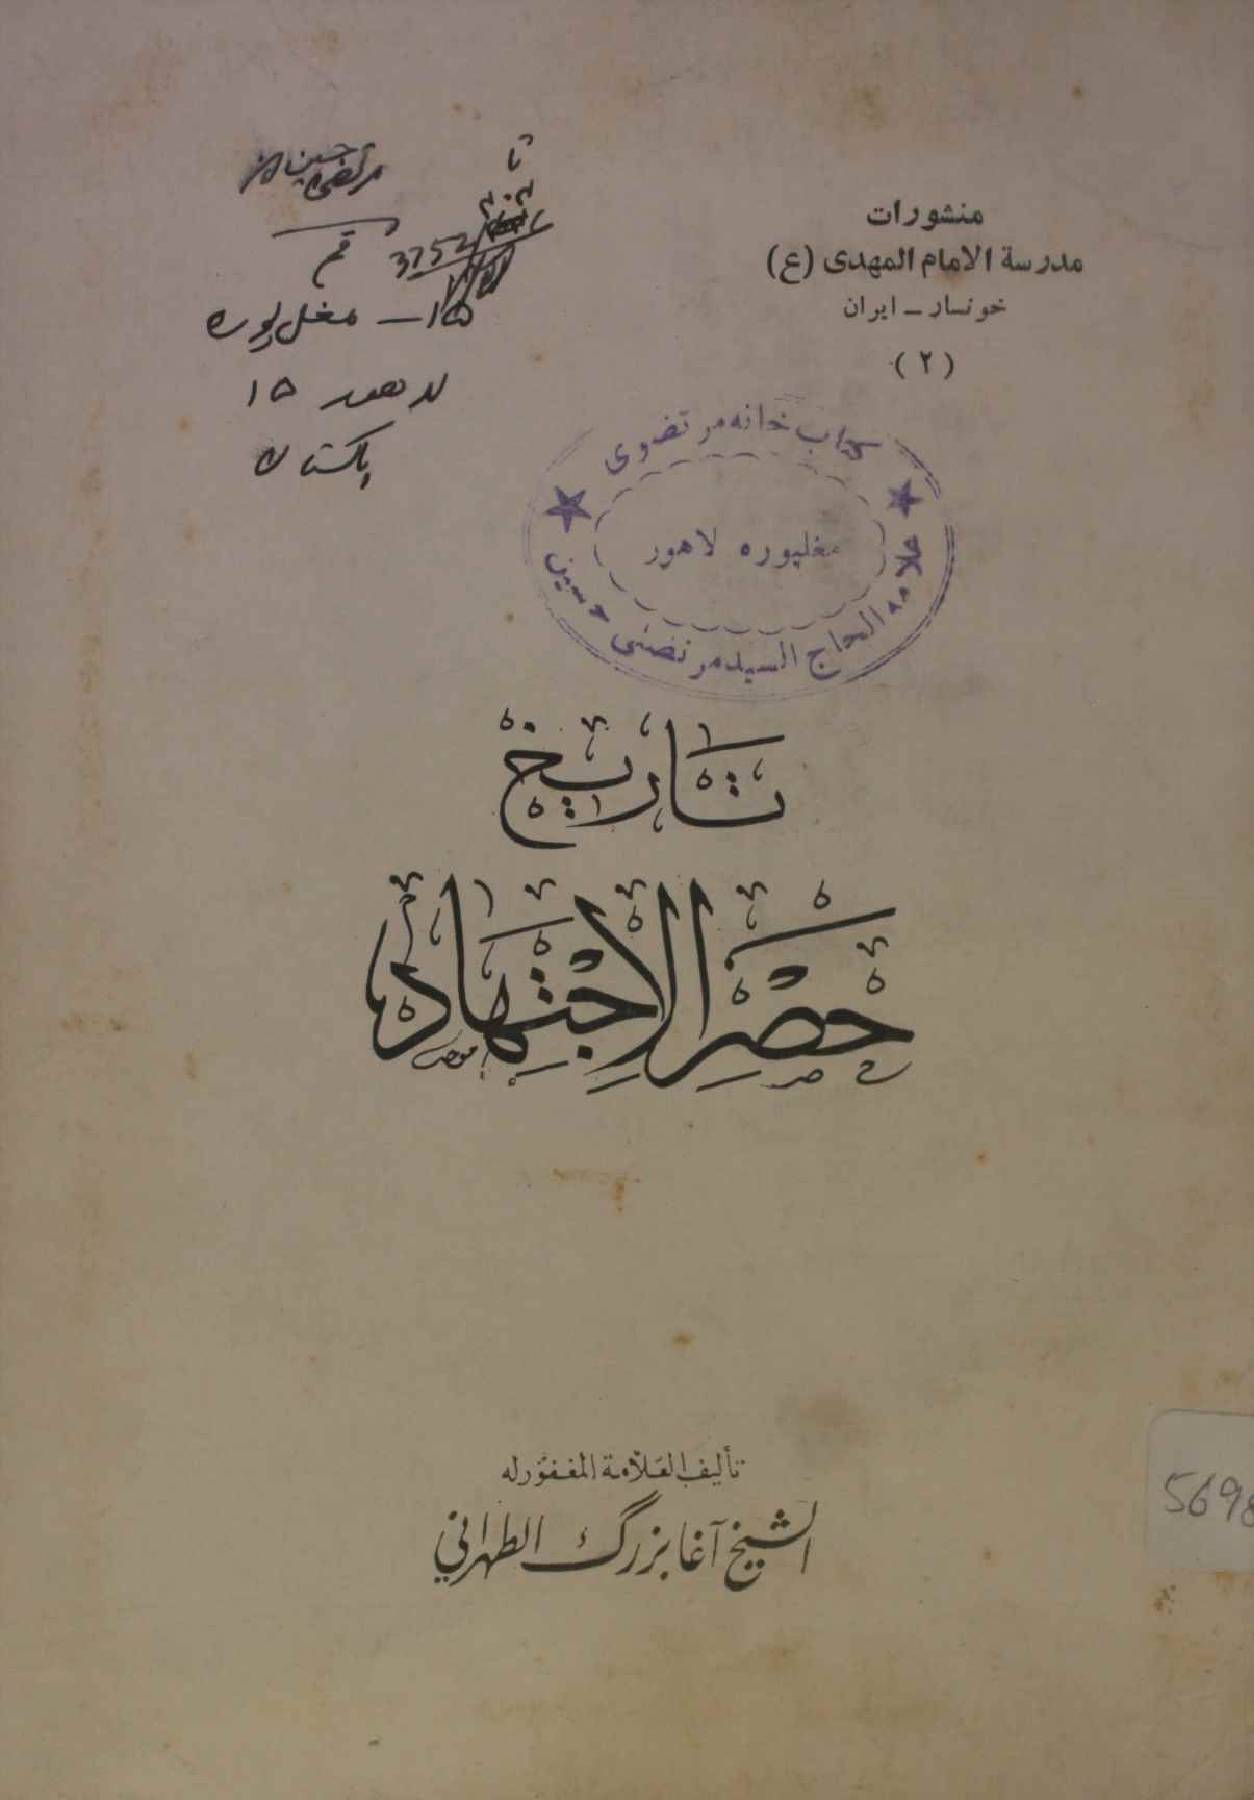 منشورات
مدرسة الامام المهدى (ع)
خونسار ــ ايران
(٢)
مرتضى حسين
قم
3752
١٥ ــ مغل پوره
لاهور ١٥
پاکستان
کتاب خانه مرتضوی
مغلپوره لاهور
علامه الحاج السيد مرتضى حسين
تَاريخ
حَصْرِ الاِجْتِهَاد
تأليف العَلّامة المغفور له
الشيخ آغا بزرگ الطهراني
5698